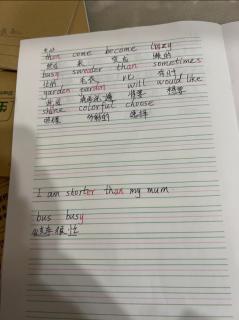 than come become lazy
来 变成 懒的
busy sweater than sometimes
忙的 毛衣 比 有时
garden eardon will would like
将要 想要
shine colorful choose
照耀 多彩的 选择
I am shorter than my mum
bus busy
公交车很忙